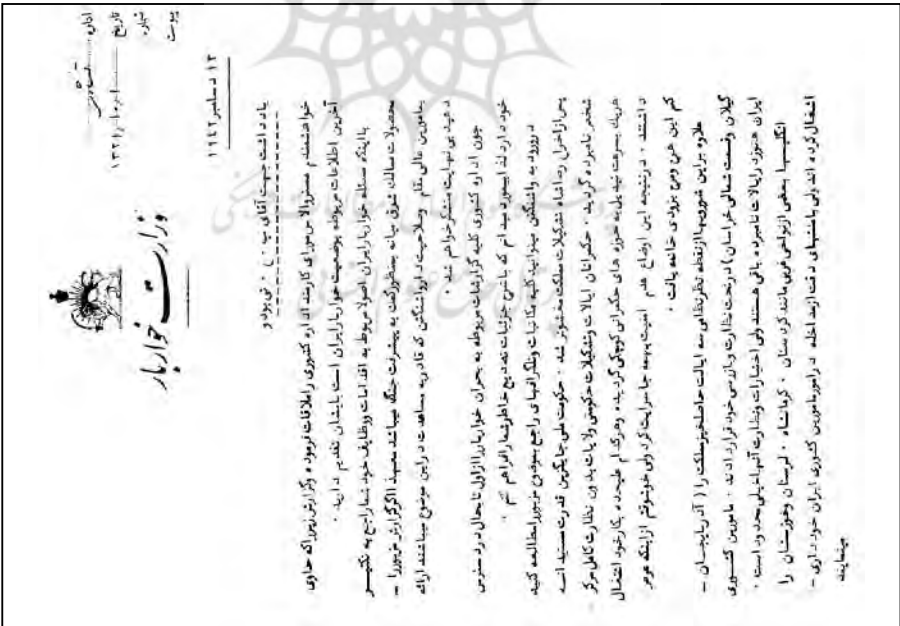 وزارت خواربار
اداره
تاریخ
شماره
پیوست
۱۳ دسامبر ۱۹۴۲
یادداشت جهت آقای
خواهشمندم مستر والاس مورای کارمند اداره کشوری را ملاقات فرموده و گزارش زیر را که حاوی
آخرین اطلاعات مربوطه بوضعیت خواربار ایران است بایشان تقدیم دارید .
با اینکه مسئله خواربار ایران اصولا مربوط به اقدامات و وظایف خود شما راجع به تکثیر
محصولات ممالک شرق میانه بمنظور کمک به پیشرفت جنگ میباشد معهذا اگر گزارش مزبور را -
بمامورین عالی مقام و صلاحیت دار واشنگتن که قادر به مساعدت در این موضوع میباشند ارائه
دهید بی نهایت متشکر خواهم شد .
چون اداره کشوری کلیه گزارشات مربوطه به بحران خواربار را از اول تا بحال در دسترس
خود دارد لذا امیدوارم که با شرح جزئیات تصدیع خاطر شما را فراهم کنم .
در ورود به واشنگتن میتوانید کلیه مکاتبات و تلگرافهای راجع بموضوع مزبور را مطالعه کنید
پس از اشغال تشکیلات مملکت شد . حکومت ملی جایگزین قدرت مستبدانه
شخص نامبرده گردید . حکمرانان ایالات و تشکیلات حکومتی ولایات بدون نظارت کامل مرکز
هریک بسرعت تبدیل به حوزه های حکمرانی کوچکی گردیده و هر کدام علیحده بکار خود اشتغال
داشتند . در نتیجه این اوضاع عدم امنیت بهمه جا سرایت کرد ولی خوشوقتم از اینکه
کم این هرج و مرج بزودی خاتمه یافت .
علاوه براین شوروی ها از نقطه نظر نظامی سه ایالت حاصلخیز مملکت را ( آذربایجان -
گیلان و قسمت شمالی خراسان ) در تحت نظارت و بازرسی خود قرار دادند . مامورین کشوری
ایران هنوز در ایالات نامبرده باقی هستند ولی اختیارات و نظارت آنها خیلی محدود است .
انگلیسها بعضی از نواحی غربی مانند کردستان . کرمانشاه . لرستان و خوزستان را
اشغال کرده اند ولی با منتهای دقت از مداخله در امور مامورین کشوری ایران خودداری -
مینمایند